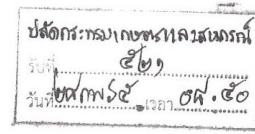 ปลัดกระทรวงเกษตรและสหกรณ์
รับที่ ๕๒๑
วันที่ ๒๙ ก.พ. ๖๕ เวลา ๐๙.๕๐